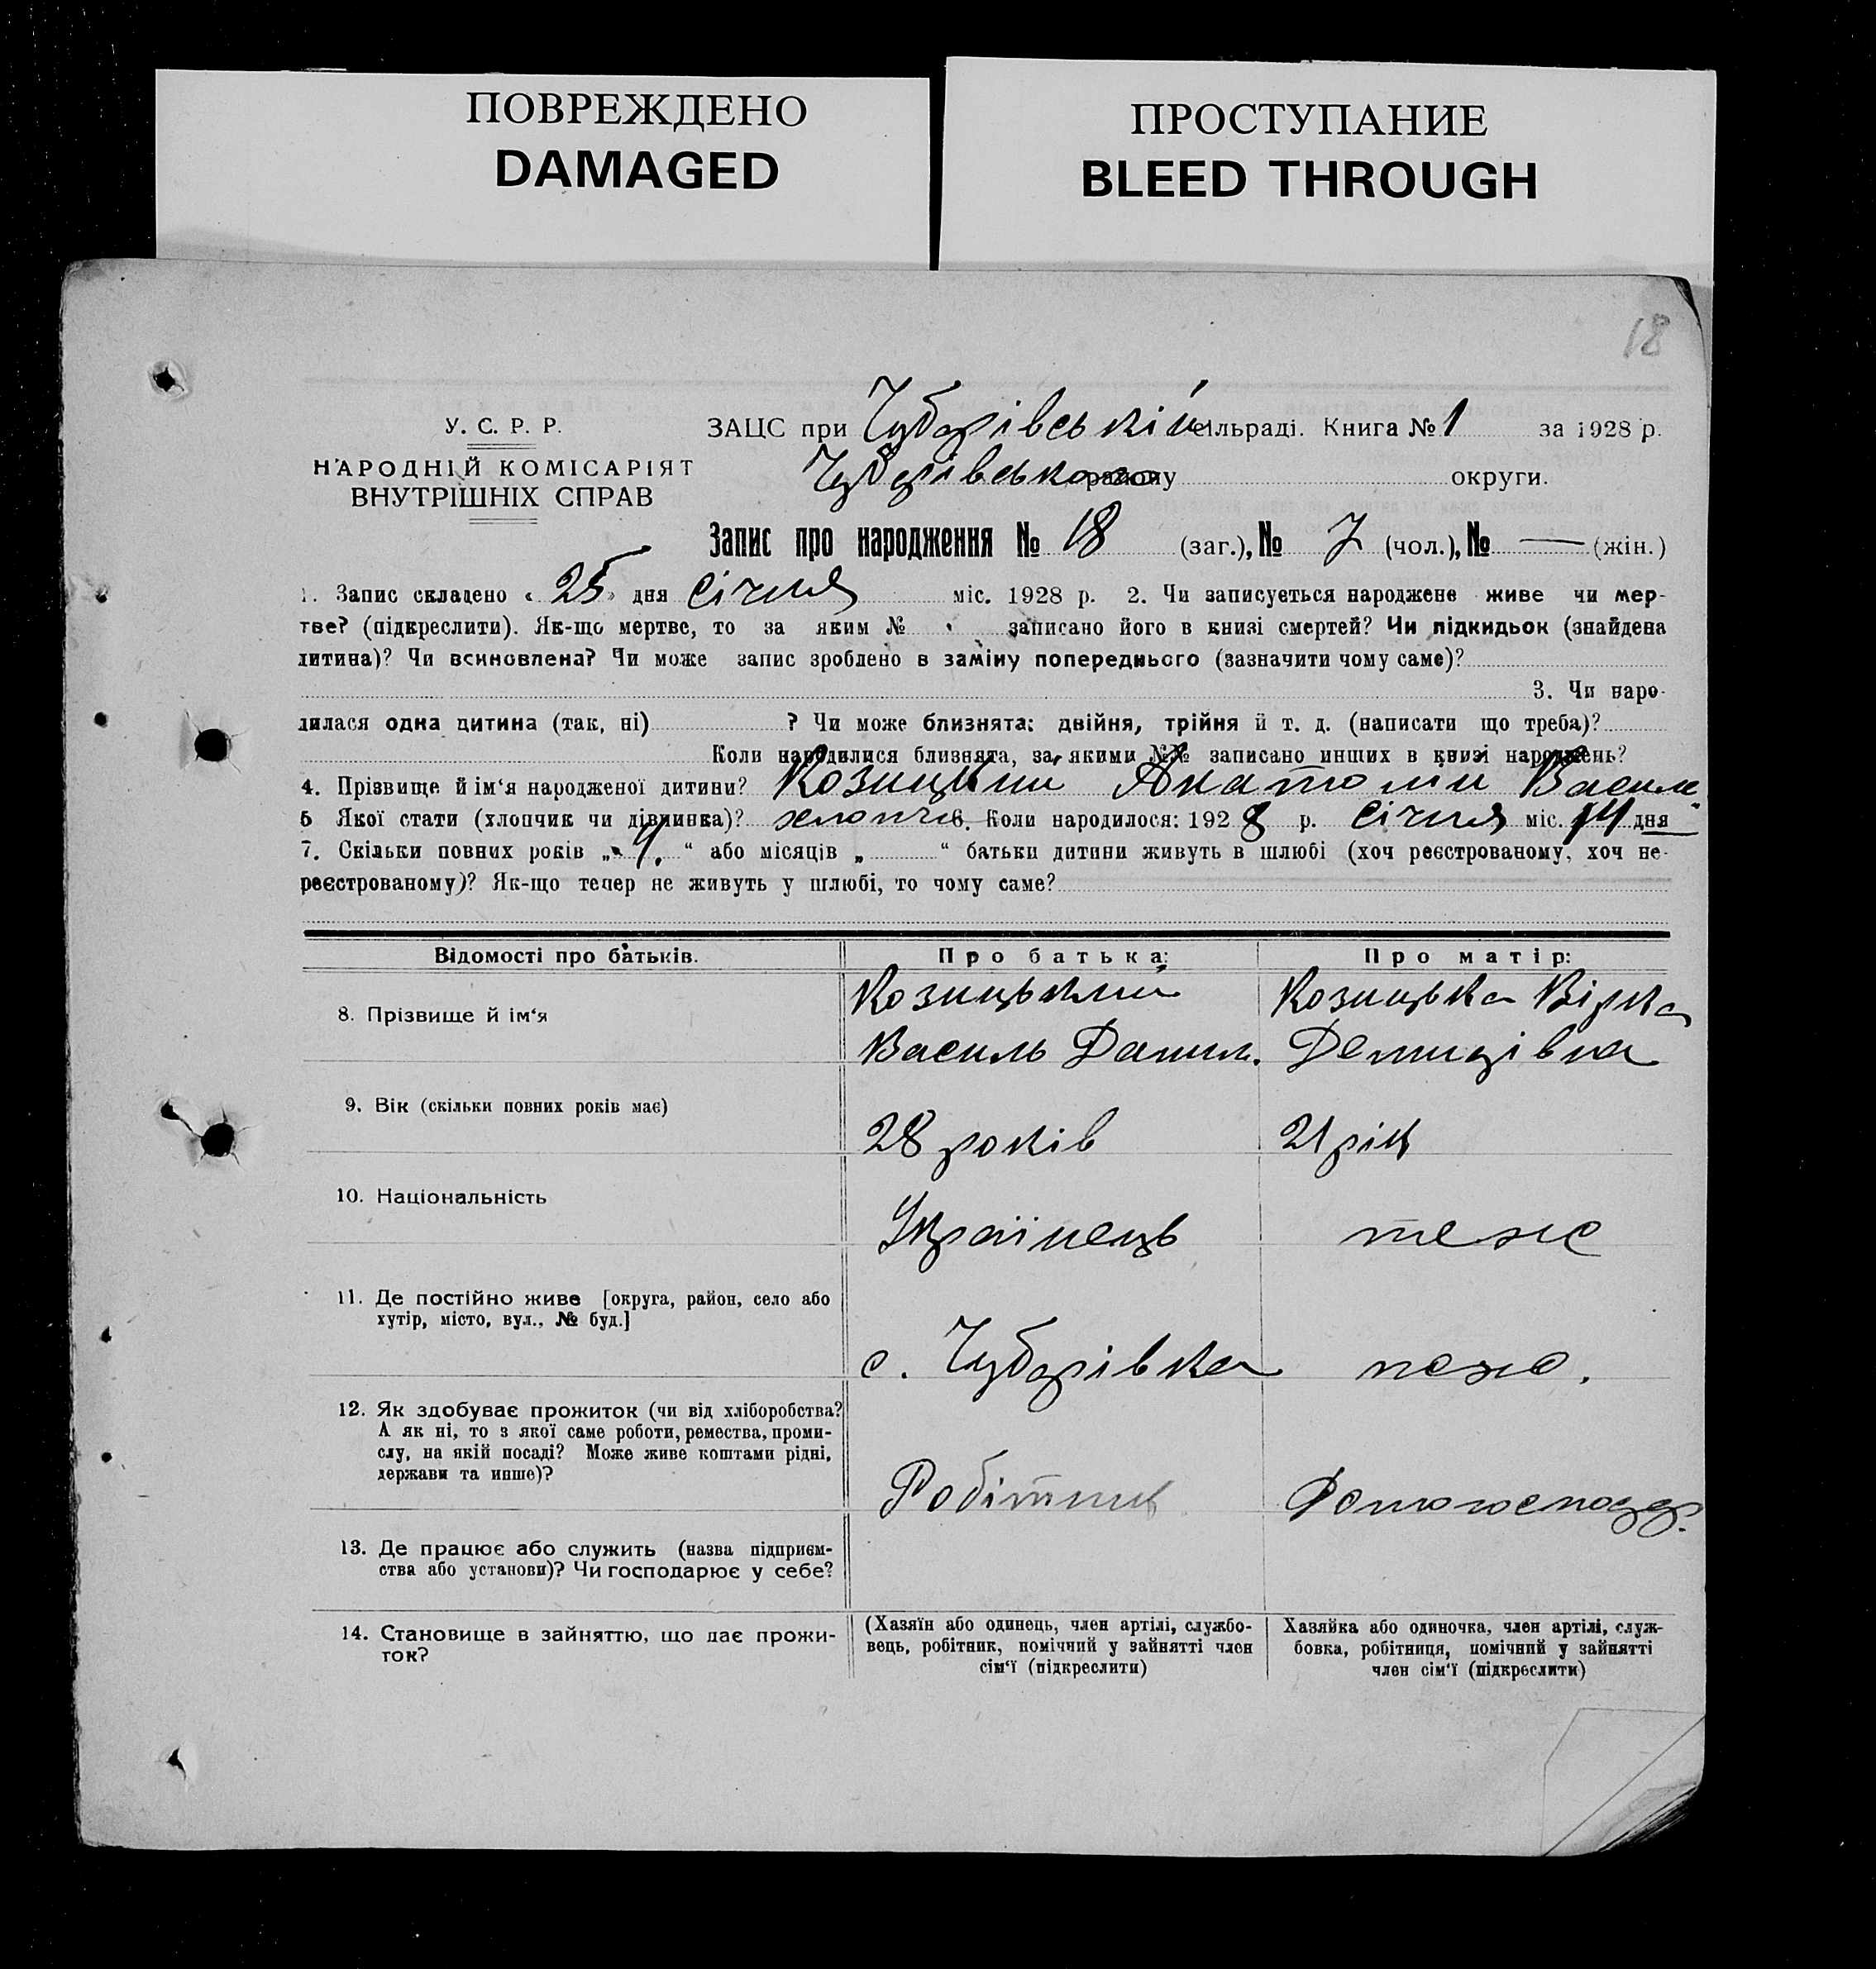 ПОВРЕЖДЕНО
DAMAGED
ПРОСТУПАНИЕ
BLEED THROUGH
18
У. С. Р. Р.
НАРОДНІЙ КОМІСАРІЯТ
ВНУТРІШНІХ СПРАВ
ЗАЦС при Чубарівській сільраді. Книга № 1 за 1928 р.
Чубарівського району округи.
Запис про народження № 18 (заг.), № 7 (чол.), № — (жін.)
1. Запис складено « 25 » дня січня міс. 1928 р. 2. Чи записується народжене живе чи мер-
тве? (підкреслити). Як-що мертве, то за яким № записано його в книзі смертей? Чи підкидьок (знайдена
дитина)? Чи всиновлена? Чи може запис зроблено в заміну попереднього (зазначити чому саме)?
3. Чи наро-
дилася одна дитина (так, ні) ? Чи може близнята: двійня, трійня й т. д. (написати що треба)?
Коли народилися близнята, за якими №№ записано инших в книзі народжень?
4. Прізвище й ім‘я народженої дитини? Козицький Анатолій Васил.
5 Якої стати (хлопчик чи дівчинка)? хлопчик 6. Коли народилося: 1928 р. Січня міс. 14 дня
7. Скільки повних років „ 4. “ або місяців „ “ батьки дитини живуть в шлюбі (хоч реєстрованому, хоч не-
реєстрованому)? Як-що тепер не живуть у шлюбі, то чому саме?
Відомості про батьків. Про батька: Про матір:
8. Прізвище й ім‘я
Козицький Козицька Вірка
Василь Данил. Демидівна
9. Вік (скільки повних років має)
28 років 21 рік
10. Національність
Українець теже
11. Де постійно живе [округа, район, село або
хутір, місто, вул., № буд.]
с. Чубарівка теже.
12. Як здобуває прожиток (чи від хліборобства?
А як ні, то з якої саме роботи, ремества, проми-
слу, на якій посаді? Може живе коштами рідні,
держави та инше)?
Робітник Домогосподар.
13. Де працює або служить (назва підприєм-
ства або установи)? Чи господарює у себе?
14. Становище в зайняттю, що дає прожи-
ток?
(Хазяїн або одинець, член артілі, службо-
вець, робітник, помічний у зайнятті член
сім‘ї (підкреслити)
Хазяйка або одиночка, член артілі, служ-
бовка, робітниця, помічний у зайнятті
член сім‘ї (підкреслити)